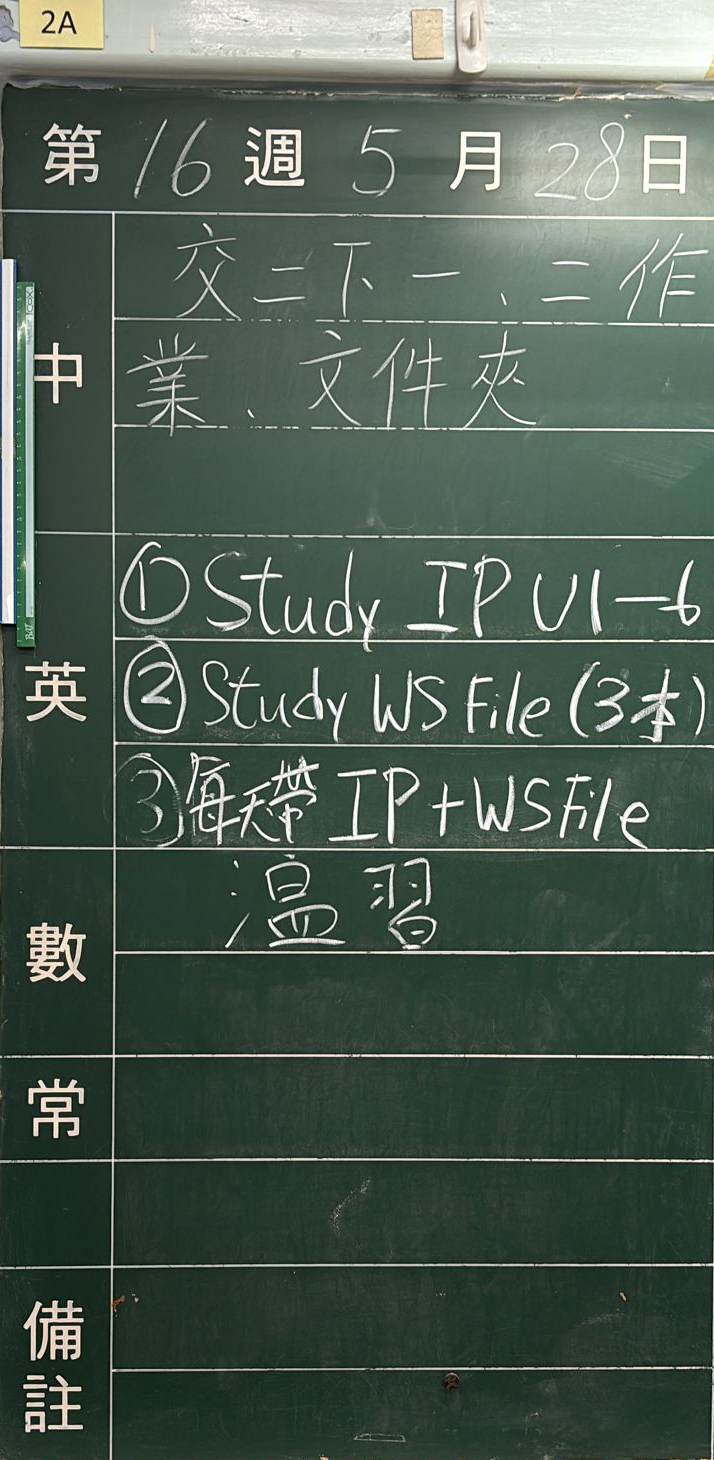 2A
第 16 週 5 月 28 日
中
交二下一、二作
業、文件夾
英
① Study IP U1-6
② Study WS File (3本)
③ 每天帶 IP + WS File
數
溫習
常
備註